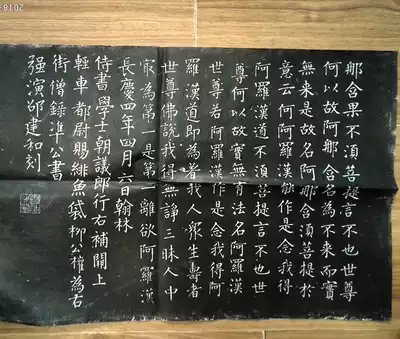 那含果不須菩提言不也世尊
何以故阿那含名為不来而實
無来是故名阿那含須菩提於
意云何阿羅漢能作是念我得
阿羅漢道不須菩提言不也世
尊何以故實無有法名阿羅漢
世尊若阿羅漢作是念我得阿
羅漢道即為著我人衆生壽者
世尊佛說我得無諍三昧人中
㝡為第一是第一離欲阿羅漢
長慶四年四月六日翰林
侍書學士朝議郎行右補闕上
輕車都尉賜緋魚袋柳公權為右
街僧録准公書
强演邵建和刻